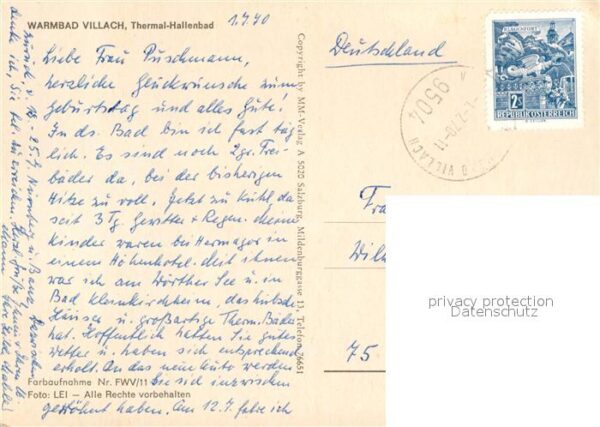 WARMBAD VILLACH, Thermal-Hallenbad
1.7.70
Liebe Frau Puschmann,
herzliche Glückwünsche zum
Geburtstag und alles Gute!
In ds. Bad bin ich fast täg
lich. Es sind noch 2 gr. Frei-
bäder da, bei der bisherigen
Hitze zu voll, jetzt zu kühl, da
seit 3 Tg. Gewitter + Regen. Meine
Kinder waren bei Hermagor in
einem Höhenhotel. Mit ihnen
war ich am Wörther See u. in
Bad Kleinkirchheim, das hübsche
Häuser u. großartige Therm. Bäder
hat. Hoffentlich hatten Sie gutes
Wetter u. haben sich entsprechend
erholt. An das neue Auto werden
Farbaufnahme Nr. FWV/11 Sie sich inzwischen
Foto: LEI — Alle Rechte vorbehalten
gewöhnt haben. Am 12.7. fahre ich
zurück u. 13.-25.7. Nürnberg u.
denke ich, Sie tel. zu erreichen. Herzl. Grüße Ihnen u. Ihrem
Mann Ihre
Copyright by MM-Verlag A 5020 Salzburg, Mildenburggasse 13, Telefon 76651
Deutschland
KLAGENFURT
2S
REPUBLIK ÖSTERREICH
9504
-1.-7.70-11
VILLACH
Fra
Wilh
75
privacy protection
Datenschutz